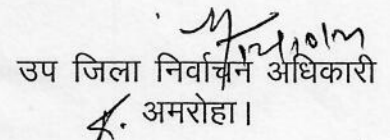 उप जिला निर्वाचन अधिकारी
अमरोहा।